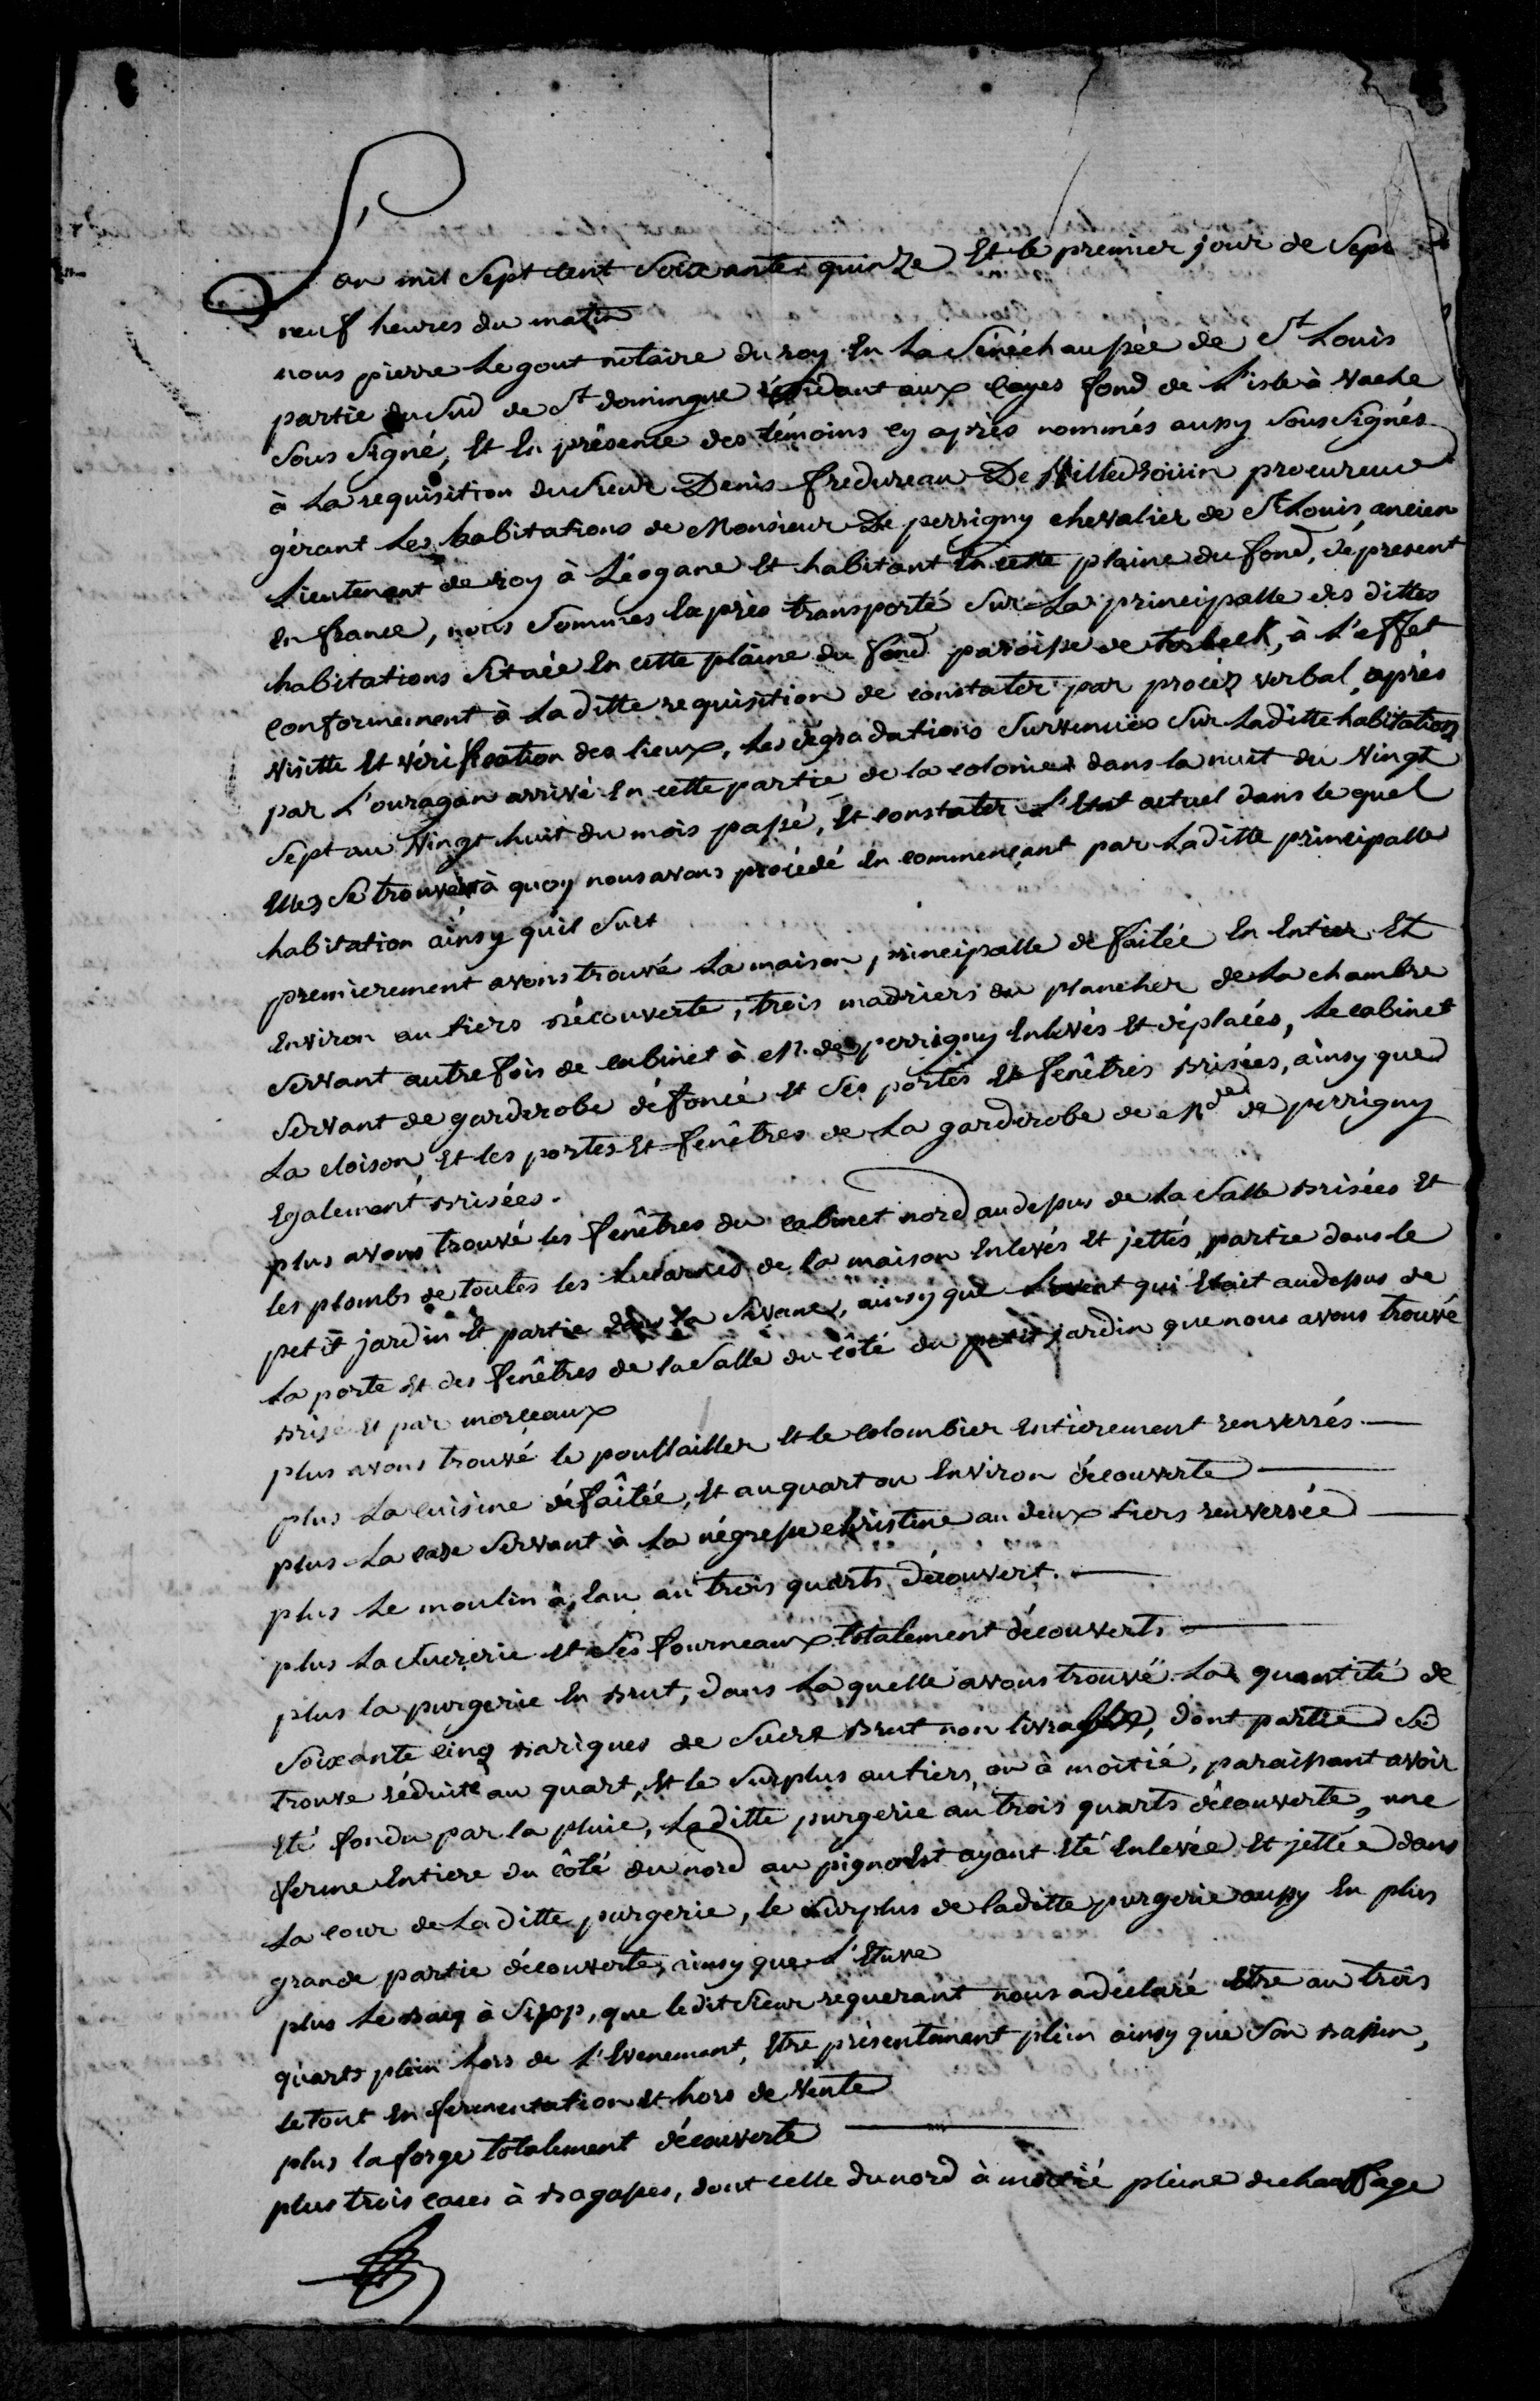 L'an mil Sept Cent Soixante quinze Et le premier jour de Sep
neuf heures du matin
nous pierre Legout notaire du roy En La Sénéchaussée de St Louis
partie du Sud de St domingue résidant aux Cayes fond de L'isle à Vache
Sous Signé, Et En présence des témoins cy après nommés aussy Sous Signés
à La requisition du Sieur Denis fredureau De Villedrouin procureur
gérant Les habitations de Monsieur De perrigny chevalier de St Louis, ancien
Lieutenant de roy à Léogane Et habitant En cette plaine du fond, de présent
En france, nous Sommes Exprès transporté Sur La principalle des dittes
habitations Située En cette plaine du fond paroisse de torbeck, à L'effet
conformement à La ditte requisition de constater par procèz verbal, après
Visitte Et vérification des lieux, Les dégradations Survenuës Sur Laditte habitation
par L'ouragan arrivé En cette partie de la colonie dans la nuit du Vingt
Sept au Vingt huit du mois passé, Et constater L'Etat actuel dans lequel
Elles Se trouvent à quoy nous avons procédé En commençant par Laditte principalle
habitation ainsy qu'il Suit
premierement avons trouvé La maison principalle défaitée En Entier Et
Environ au tiers découverte, trois madriers du plancher de La chambre
Servant autrefois de cabinet à M. de perrigny Enlevés Et déplacés, Le cabinet
Servant de garderobe défoncé Et Ses portes Et fenêtres brisées, ainsy que
La cloison, Et les portes Et fenêtres de La garderobe de Mde de perrigny
Egalement brisées.
plus avons trouvé les fenêtres du cabinet nord audessus de La Salle brisées Et
les plombs de toutes les Lucarnes de la maison Enlevés Et jettés partie dans le
petit jardin Et partie dans la Savane, ainsy que L'auvent qui Etait audessus de
La porte Et des fenêtres de la Salle du côté du petit jardin que nous avons trouvé
brisé Et par morceaux
plus avons trouvé le poullailler Et le colombier Entièrement renversés.
plus La cuisine défaîtée, Et au quart ou Environ découverte
plus La case Servant à La négresse christine au deux tiers renversée
plus Le moulin à Eau au trois quarts découvert.
plus La Sucrerie Et Ses fourneaux totalement découverts
plus la purgerie En brut, dans Laquelle avons trouvé La quantité de
Soixante cinq bariques de Sucre brut non livrables, dont partie Se
trouve réduite au quart, Et le Surplus au tiers, ou à moitié, paraissant avoir
Eté fondu par la pluie, Laditte purgerie au trois quarts découverte, une
ferme Entiere du côté du nord au pignon Est ayant Eté Enlevée Et jettée dans
La cour de Laditte purgerie, le Surplus de laditte purgerie aussy En plus
grande partie découverte, ainsy que L'Etuve
plus Le bacq à Sirop, que ledit Sieur requerant nous a déclaré Etre au trois
quarts plein Lors de L'Evenement, Etre présentement plein ainsy que Son bassin,
le tout En fermentation Et hors de Vente
plus la forge totalement découverte
plus trois cases à bagasses, dont celle du nord à moitié pleine de chauffage